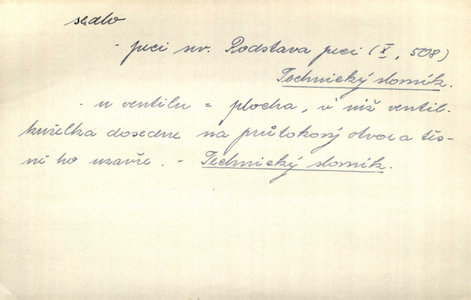 sedlo
- peci sv. Podstava peci (X, 508)
Technický slovník.
- u ventilu = plocha, v níž ventil.
kuželka dosedne na průtokový otvor a těs-
ně ho uzavře. - Technický slovník.